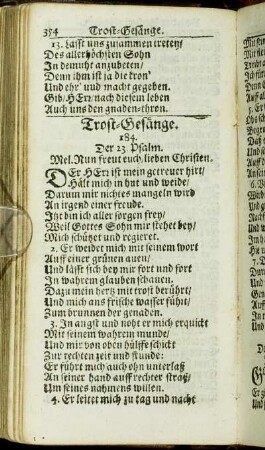 354 Trost-Gesänge.
13. Lasst uns zusammen treten/
Des allerhöchsten Sohn
In demuht anzubeten/
Denn ihm ist ja die kron'
Und ehr' und macht gegeben.
Gib/ HErr/ nach diesem leben
Auch uns den gnaden-thron.
Trost-Gesänge.
184.
Der 23 Psalm.
Mel. Nun freut euch/ lieben Christen.
DEr HErr ist mein getreuer hirt/
Hält mich in hut und weide/
Darum mir nichtes mangeln wird
An irgend einer freude.
Itzt bin ich aller sorgen frey/
Weil Gottes Sohn mir stehet bey/
Mich schützet und regieret.
2. Er weidet mich mit seinem wort
Auff einer grünen auen/
Und lässt sich bey mir fort und fort
In wahrem glauben schauen.
Dazu mein hertz mit trost berührt/
Und mich ans frische wasser führt/
Zum brunnen der genaden.
3. In angst und noht er mich erquickt
Mit seinem wahrem munde/
Und mir von oben hülffe schickt
Zur rechten zeit und stunde:
Er führt mich auch ohn unterlaß
An seiner hand auff rechter straß/
Um seines nahmens willen.
4. Er leitet mich zu tag und nacht